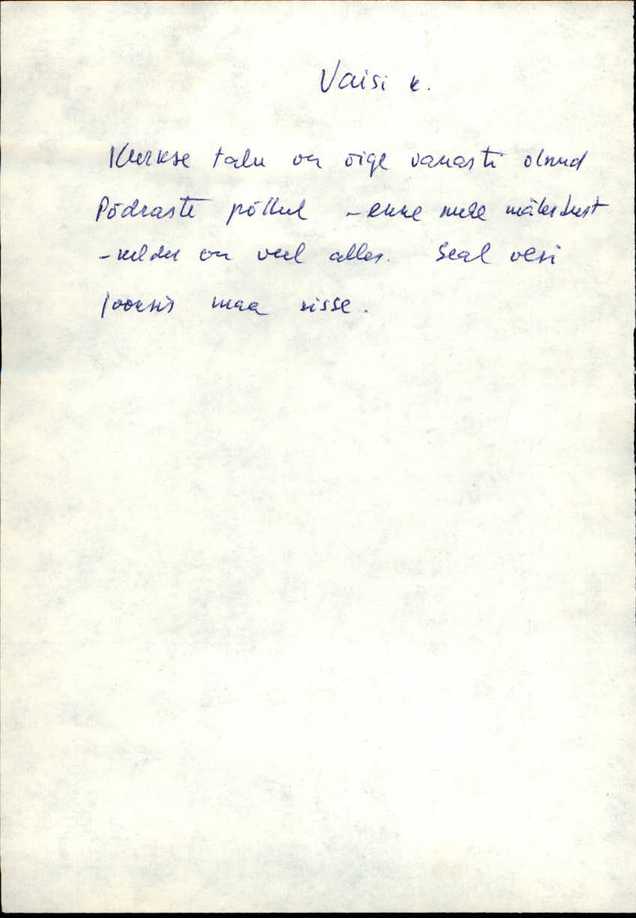 Vaisi k.
Kurkse talu on õige vanasti olnud
Põdraste põllul – enne meie mälestust
– kelder on veel alles. Seal vesi
jooksis maa sisse.